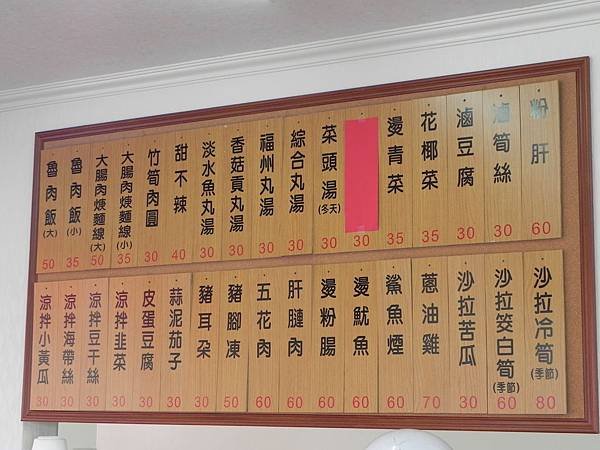 魯肉飯(大)
50
魯肉飯(小)
35
大腸肉焿麵線(大)
50
大腸肉焿麵線(小)
35
竹筍肉圓
30
甜不辣
40
淡水魚丸湯
30
香菇貢丸湯
30
福州丸湯
30
綜合丸湯
30
菜頭湯(冬天)
30
30
燙青菜
35
花椰菜
35
滷豆腐
30
滷筍絲
30
粉肝
60
涼拌小黃瓜
30
涼拌海帶絲
30
涼拌豆干絲
30
涼拌韭菜
30
皮蛋豆腐
30
蒜泥茄子
30
豬耳朵
30
豬腳凍
50
五花肉
60
肝腱肉
60
燙粉腸
60
燙魷魚
60
鯊魚煙
60
蔥油雞
70
沙拉苦瓜
30
沙拉筊白筍(季節)
60
沙拉冷筍(季節)
80